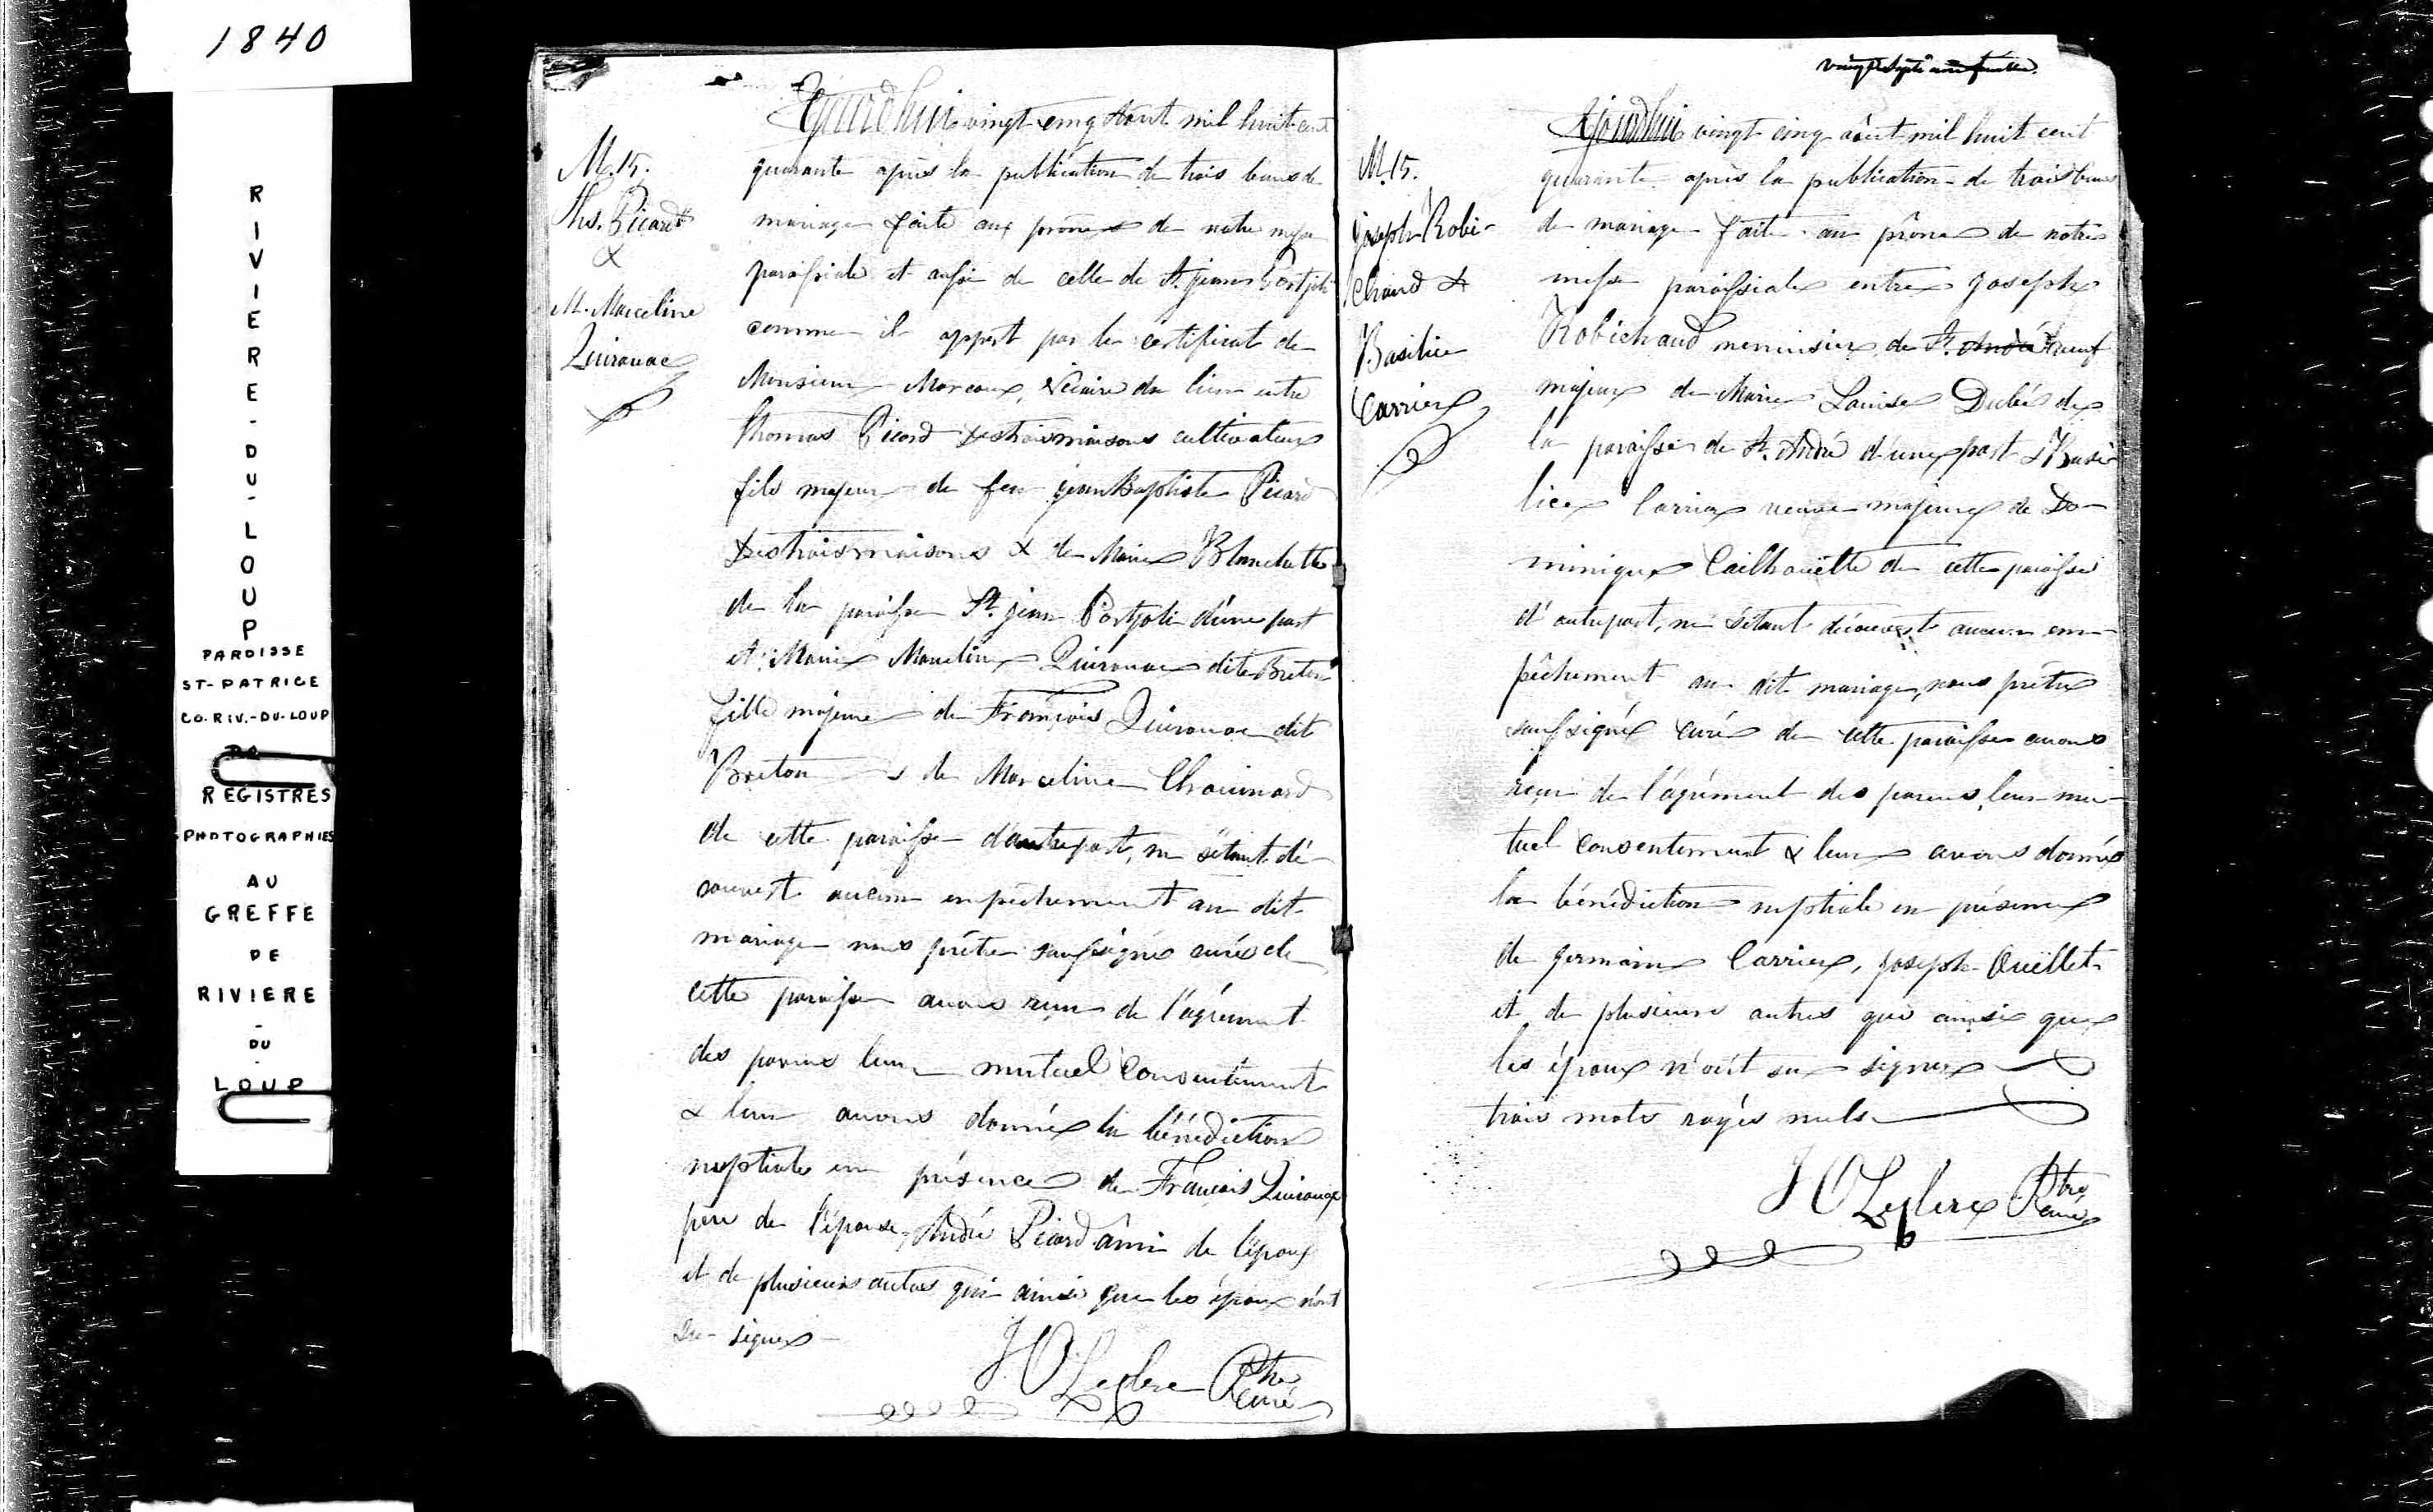 1840
RIVIERE-DU-LOUP
PAROISSE
ST-PATRICE
CO. RIV.-DU-LOUP
REGISTRES
PHOTOGRAPHIES
AU
GREFFE
DE
RIVIERE
-
DU
-
LOUP
M. 15.
Ths. Picard
&
M. Marceline
Quirouac
vingt cinq Aout mil huit cent
quarante après la publication de trois bans de
mariage faite aux prônes de notre
paroissiale et aussi de celle de St. jean Portjoli
comme il appert par le certificat de
Monsieur Moreaux, Vicaire du lieu entre
Thomas Picard Destroismaisons cultivateur
fils majeur de feu jean Baptiste Picard
Destroismaisons & de Marie Blanchette
de la paroisse St. jean Portjoli d'une part
et Marie Marceline Quirouac dite Breton
fille majeure de François Quirouac dit
Breton & de Marceline Chouinard
de cette paroisse d'autrepart, ne s'étant dé-
couvert aucun empêchement au dit
mariage nous prêtre soussigné curé de
cette paroisse avons reçu de l'agrément
des parens leur mutuel consentement
& leur avons donné la bénédiction
nuptiale en présence de François Quirouac
père de l'épouse, André Picard ami de l'époux
et de plusieurs autres qui ainsi que les époux n'ont
su signer
J O Leclerc Ptre
Curé
M. 15.
Joseph Robi-
chaud &
Basilice
Carrier
vingt cinq août mil huit cent
quarante après la publication de trois bans
de mariage faite au prône de notre
messe paroissiale entre Joseph
Robichaud menuisier de St. André veuf
majeur de Marie Louise Dubé de
la paroisse de St. André d'une part & Basi-
lice Carrier veuve majeure de Do-
minique Cailhouette de cette paroisse
d'autrepart, ne s'étant découvert aucun em-
pêchement au dit mariage, nous prêtre
soussigné curé de cette paroisse avons
reçu de l'agrément des parens, leur mu-
tuel consentement & leur avons donné
la bénédiction nuptiale en présence
de germain Carrier, Joseph Ouëllet
et de plusieurs autres qui ainsi que
les époux n'ont su signer
trois mots rayés nuls
J O Leclerc Ptre
Curé